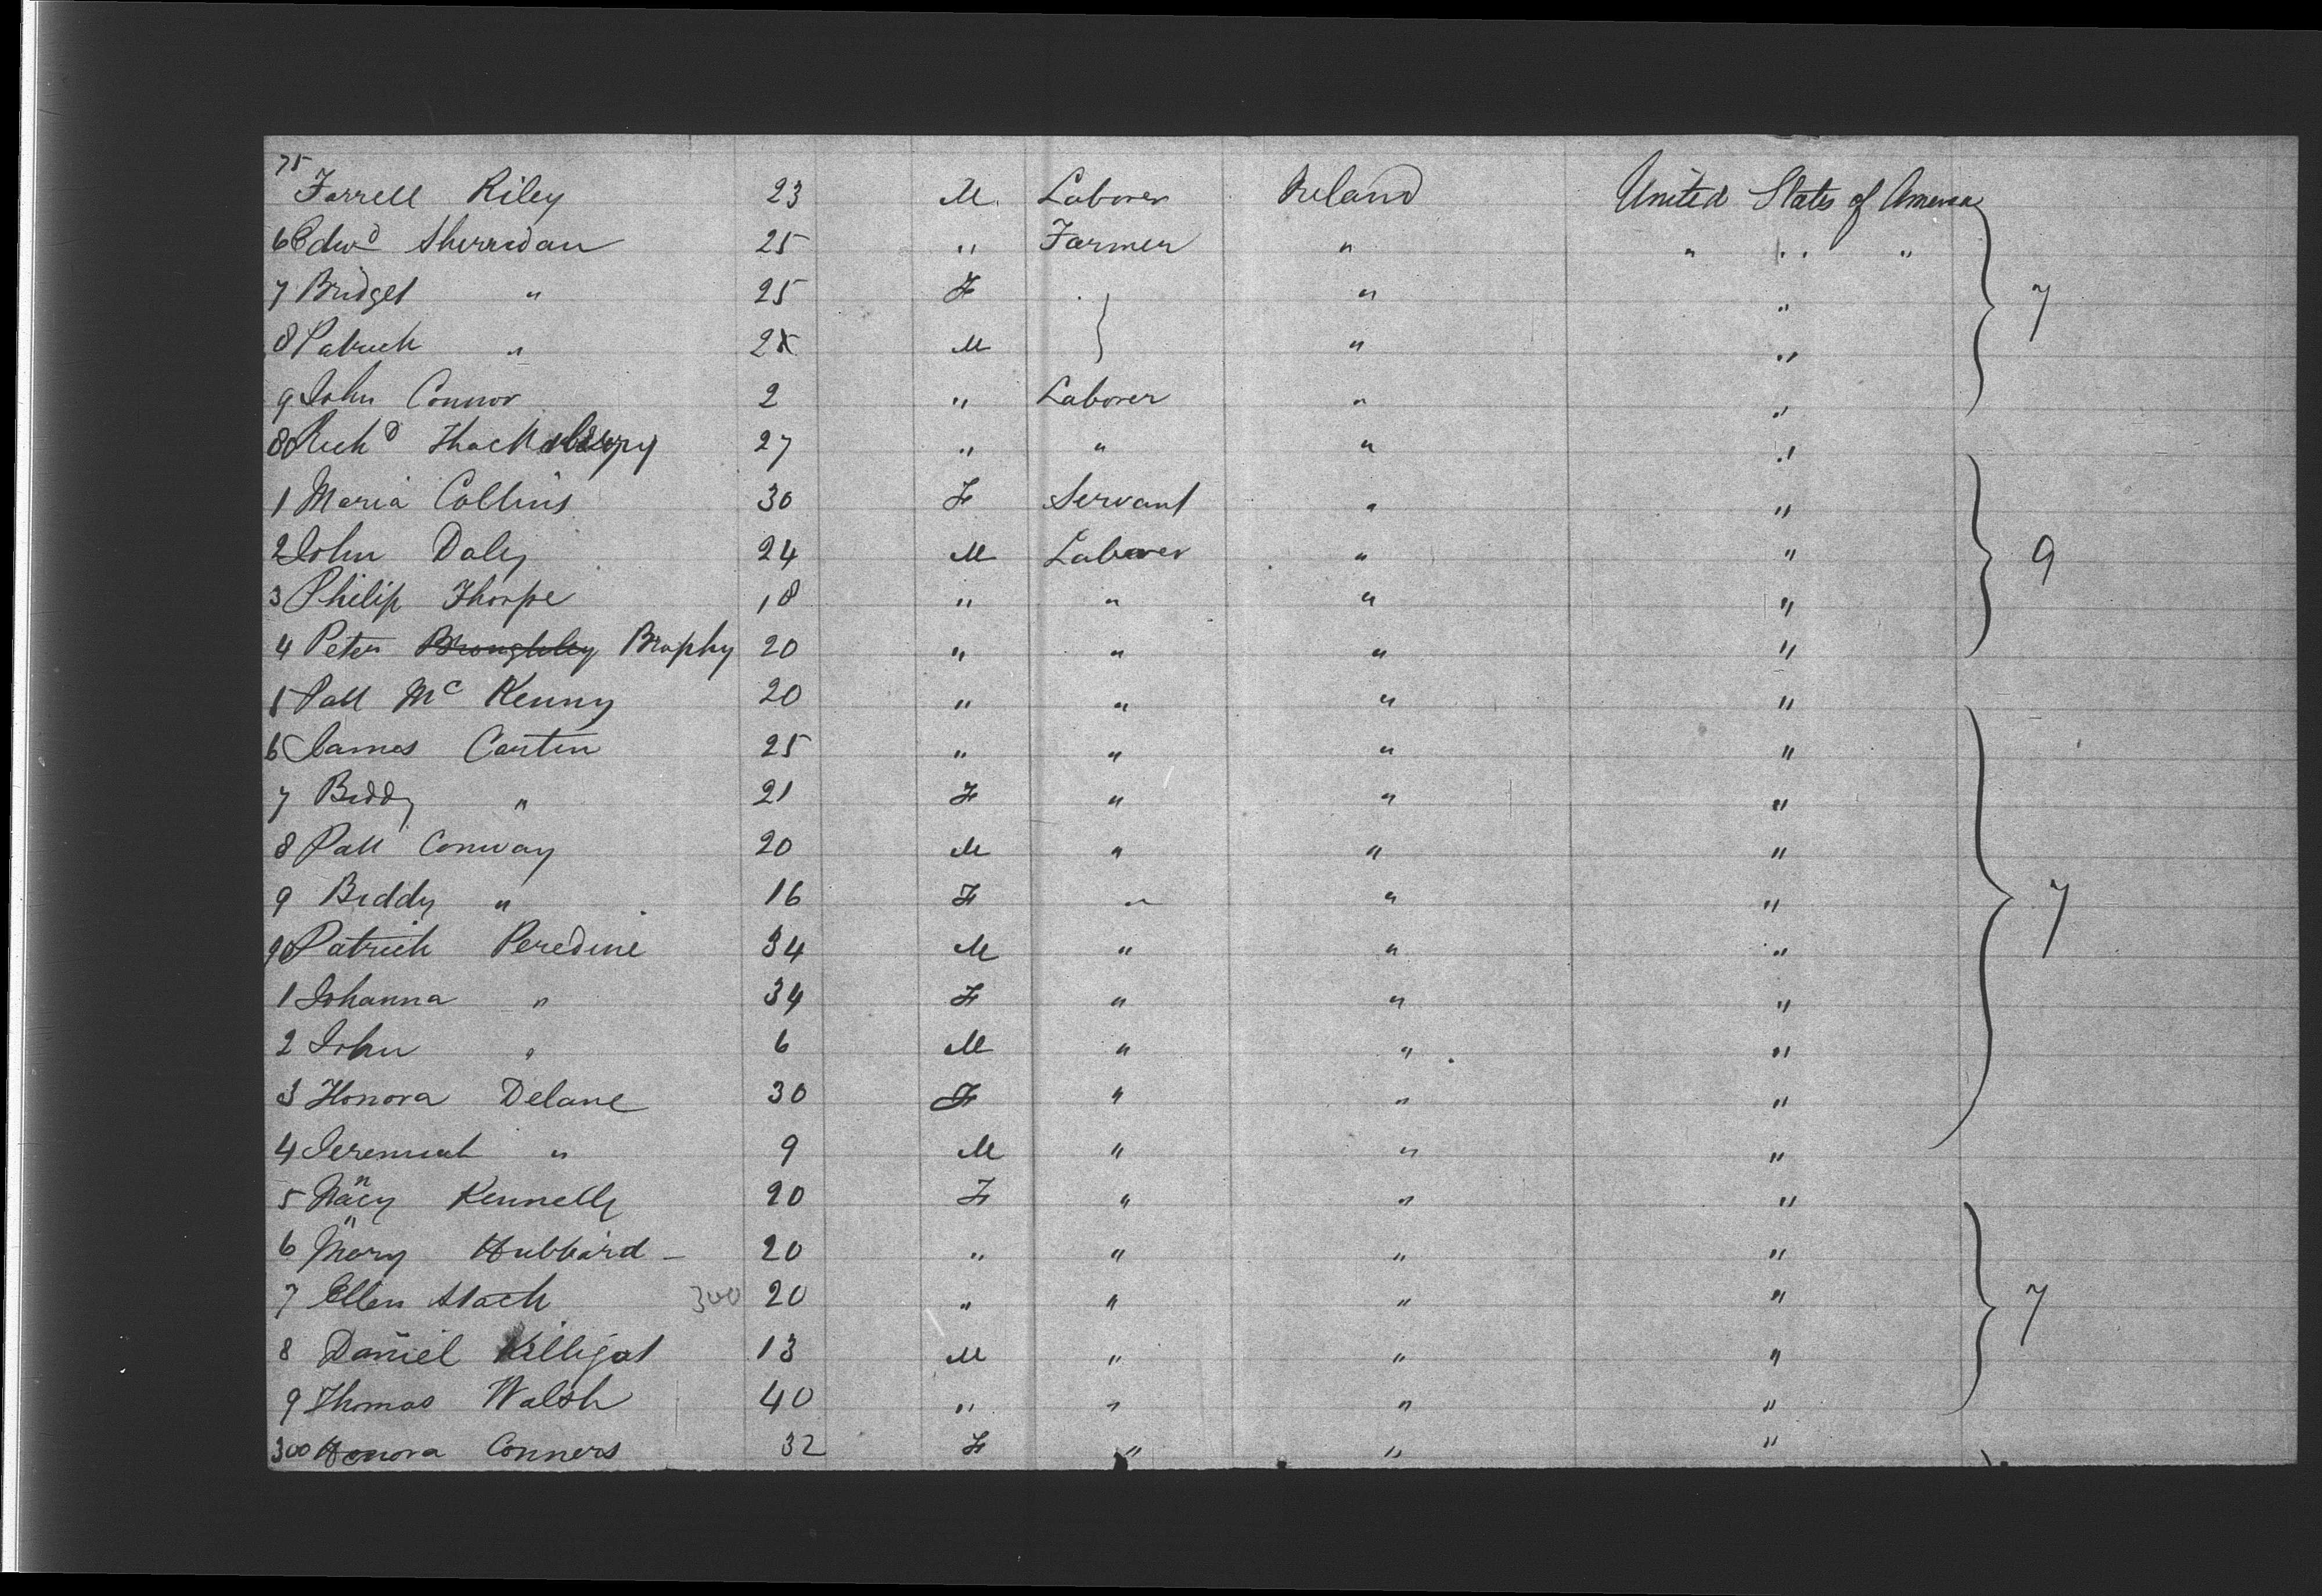 75 Farrell Riley 23 M. Laborer Ireland United States of America
6 Edwd Sherridan 25 " Farmer " " " "
7 Bridget " 25 F " " 7
8 Patrick " M " "
9 John Connor 2 " Laborer " "
80 Richd 27 " " " "
1 Maria Collins 30 F Servant " "
2 John Daly 24 M Laborer " " 9
3 Philip Thorpe 18 " " " "
4 Peter Broughley Brophy 20 " " " "
5 Patt Mc Kenny 20 " " " "
6 James Cartin 25 " " " "
7 Biddy " 21 F " " "
8 Patt Conway 20 M " " "
9 Biddy " 16 F " " " 7
90 Patrick Peredine 34 M " " "
1 Johanna " 34 F " " "
2 John " 6 M " " "
3 Honora Delane 30 F " " "
4 Jeremiah " 9 M " " "
5 Nancy Kennelly 20 F " " "
6 Mary Hubbard 20 " " " "
7 Ellen Stack 300 20 " " " " 7
8 Daniel Killigat 13 M " " "
9 Thomas Walsh 40 " " " "
300 Honora Conners 32 F " " "